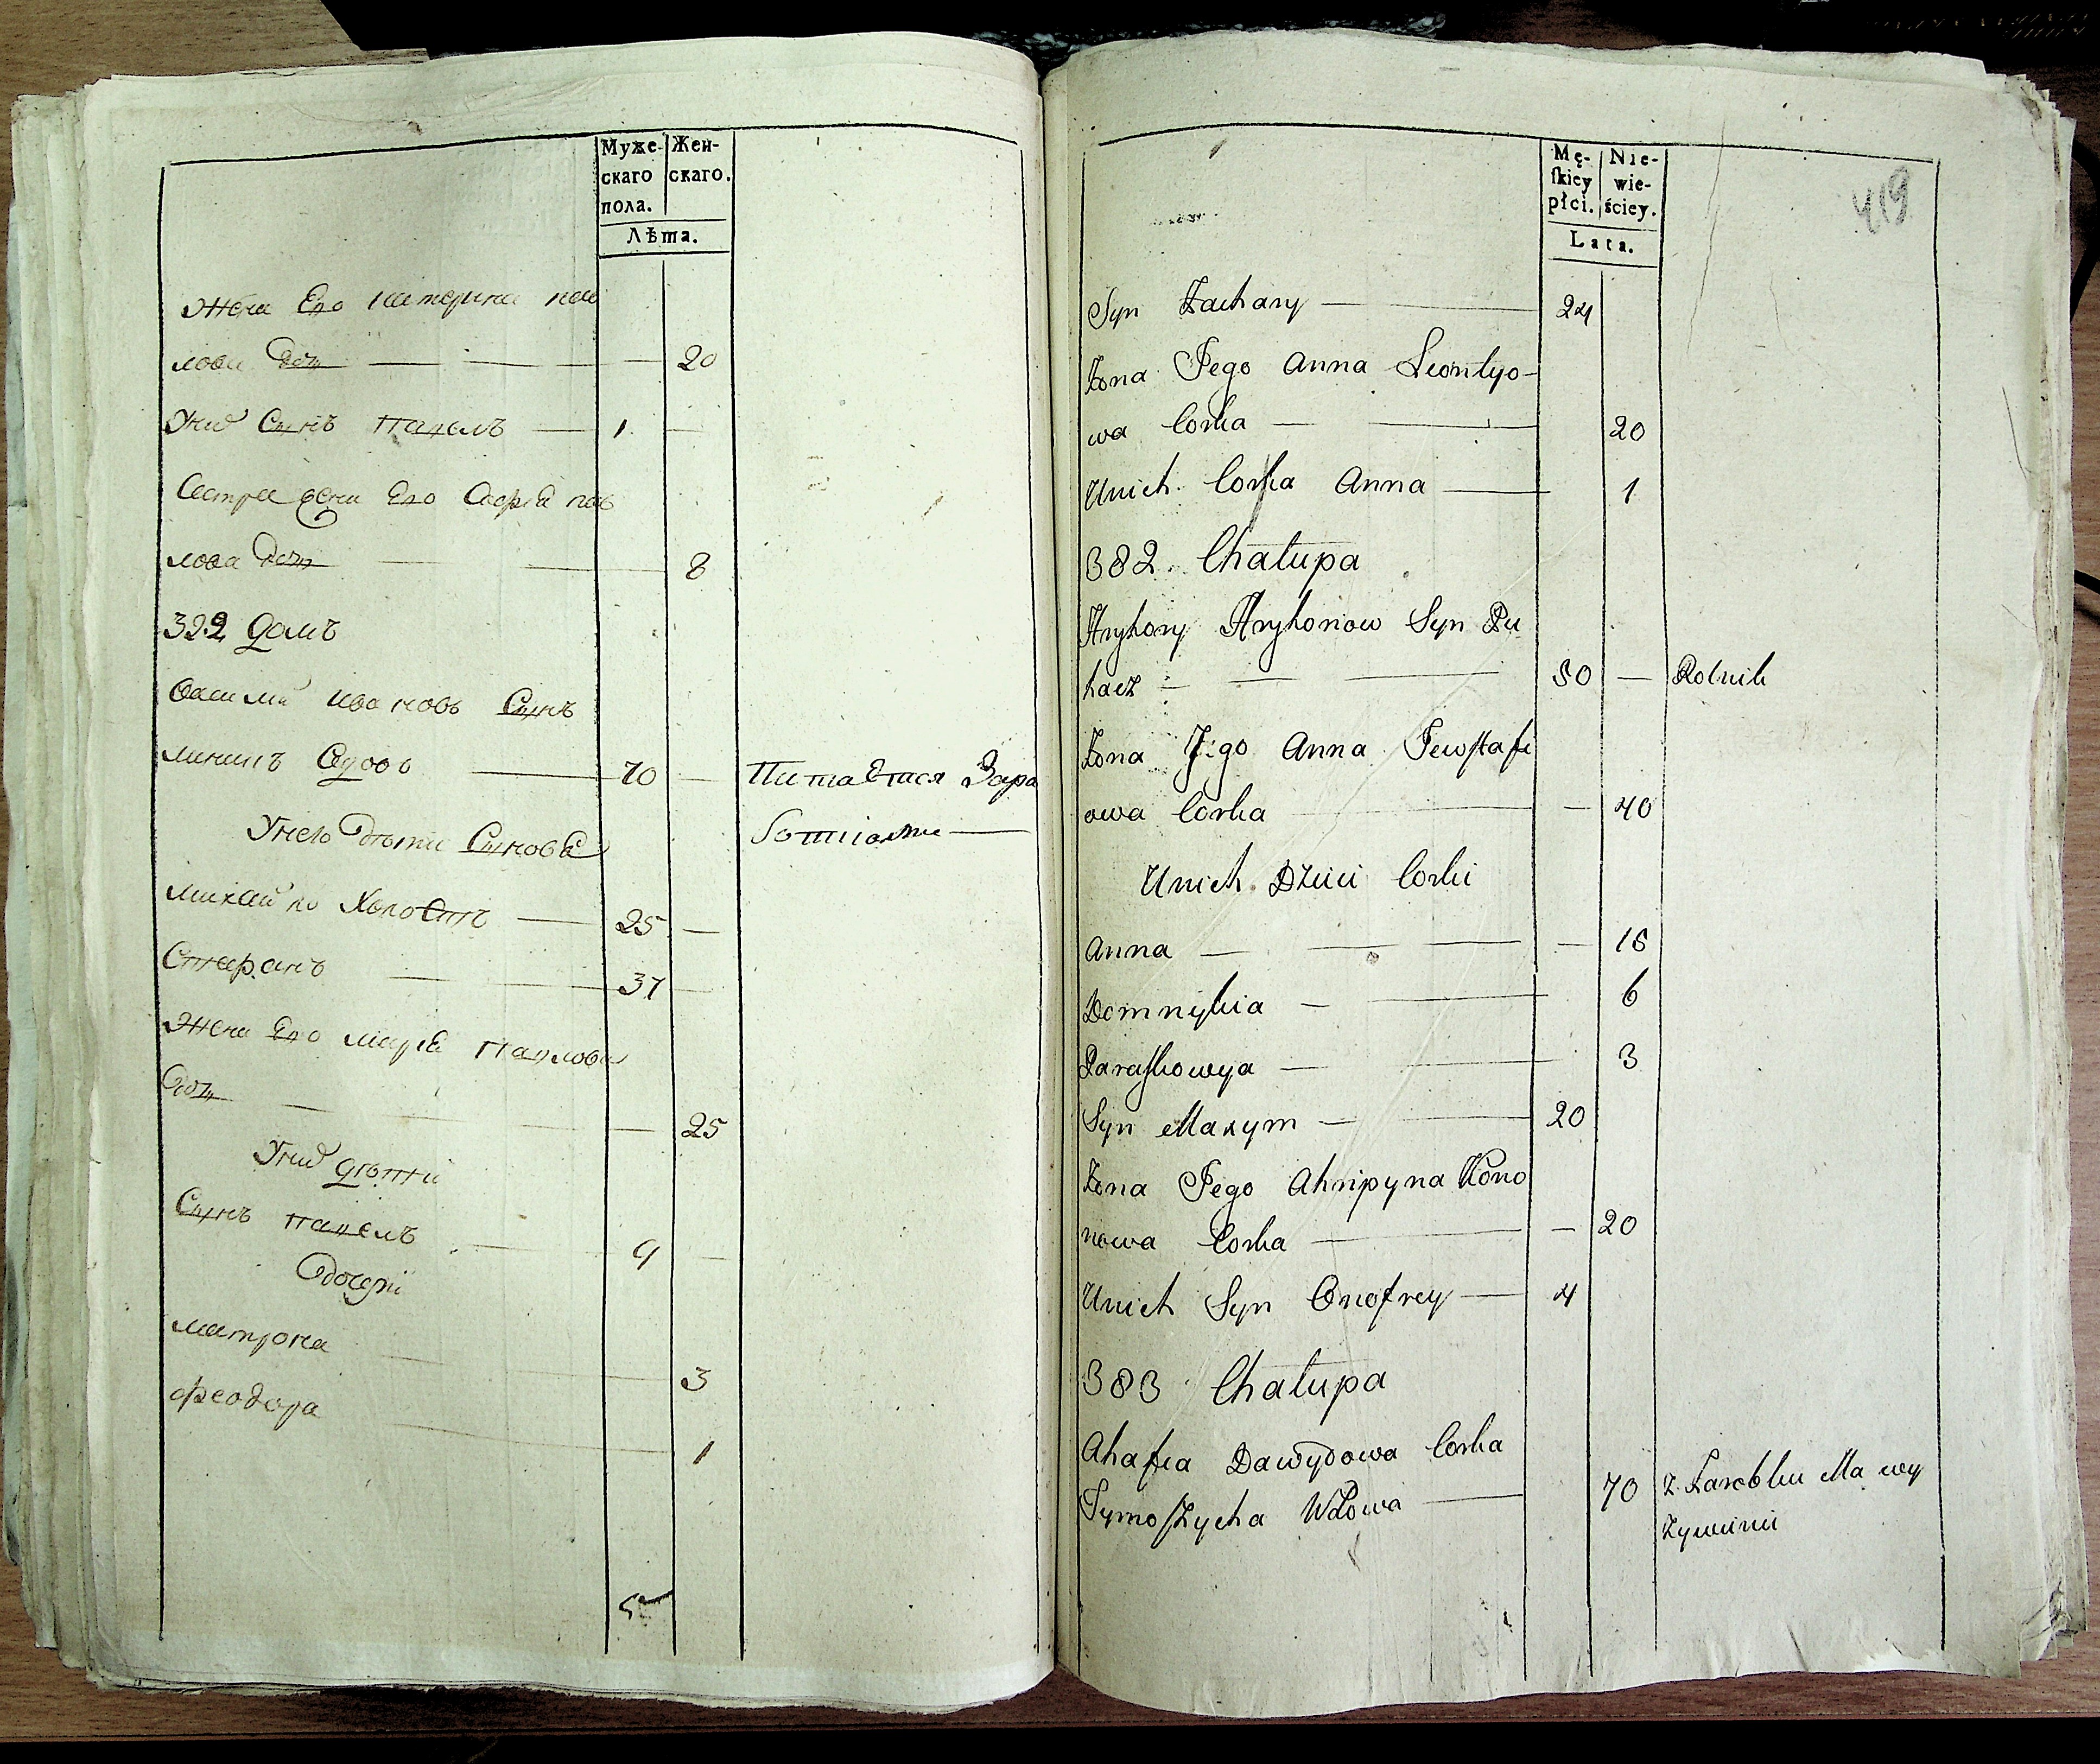 Муже-
скаго
пола.
Жен-
скаго.
Лѣта.
Жена Его Катерина пав
лова Дочь 20
Уних Сынъ Павелъ 1
Сестра жены Его Софія пав
лова Дочь 8
392 домъ
Василий Ивановъ Сынъ
70 Питается Зара
Унего дѣти Сыновѣ
ботками
Михайло Холостъ 25
Стефанъ 37
Жена Его Марія Павлова
Дочь 25
Уних дѣти
Сынъ Павелъ 9
Дочери
Матрона 3
Феодора 1
5
Mę-
skiey
płci.
Nie-
wie-
ściey.
Lata.
419
Syn Zachary 24
Zona Jego Anna Leontyo-
wa Corka 20
Unich Corka Anna 1
382 Chałupa
Hryhory Hryhoriow Syn Pu
hacz 50 Rolnik
Zona Jego Anna Jewstafi
owa Corka 40
Unich Dzieci Corki
Anna 16
Domnykia 6
Paraskowya 3
Syn Maxym 20
Zona Jego Ahripyna Kono
nowa Corka 20
Unich Syn Onofrey 4
383 Chałupa
Ahafia Dawydowa Corka
Tymoszycha Wdowa 70 z Zarobku Ma wy
zywieni